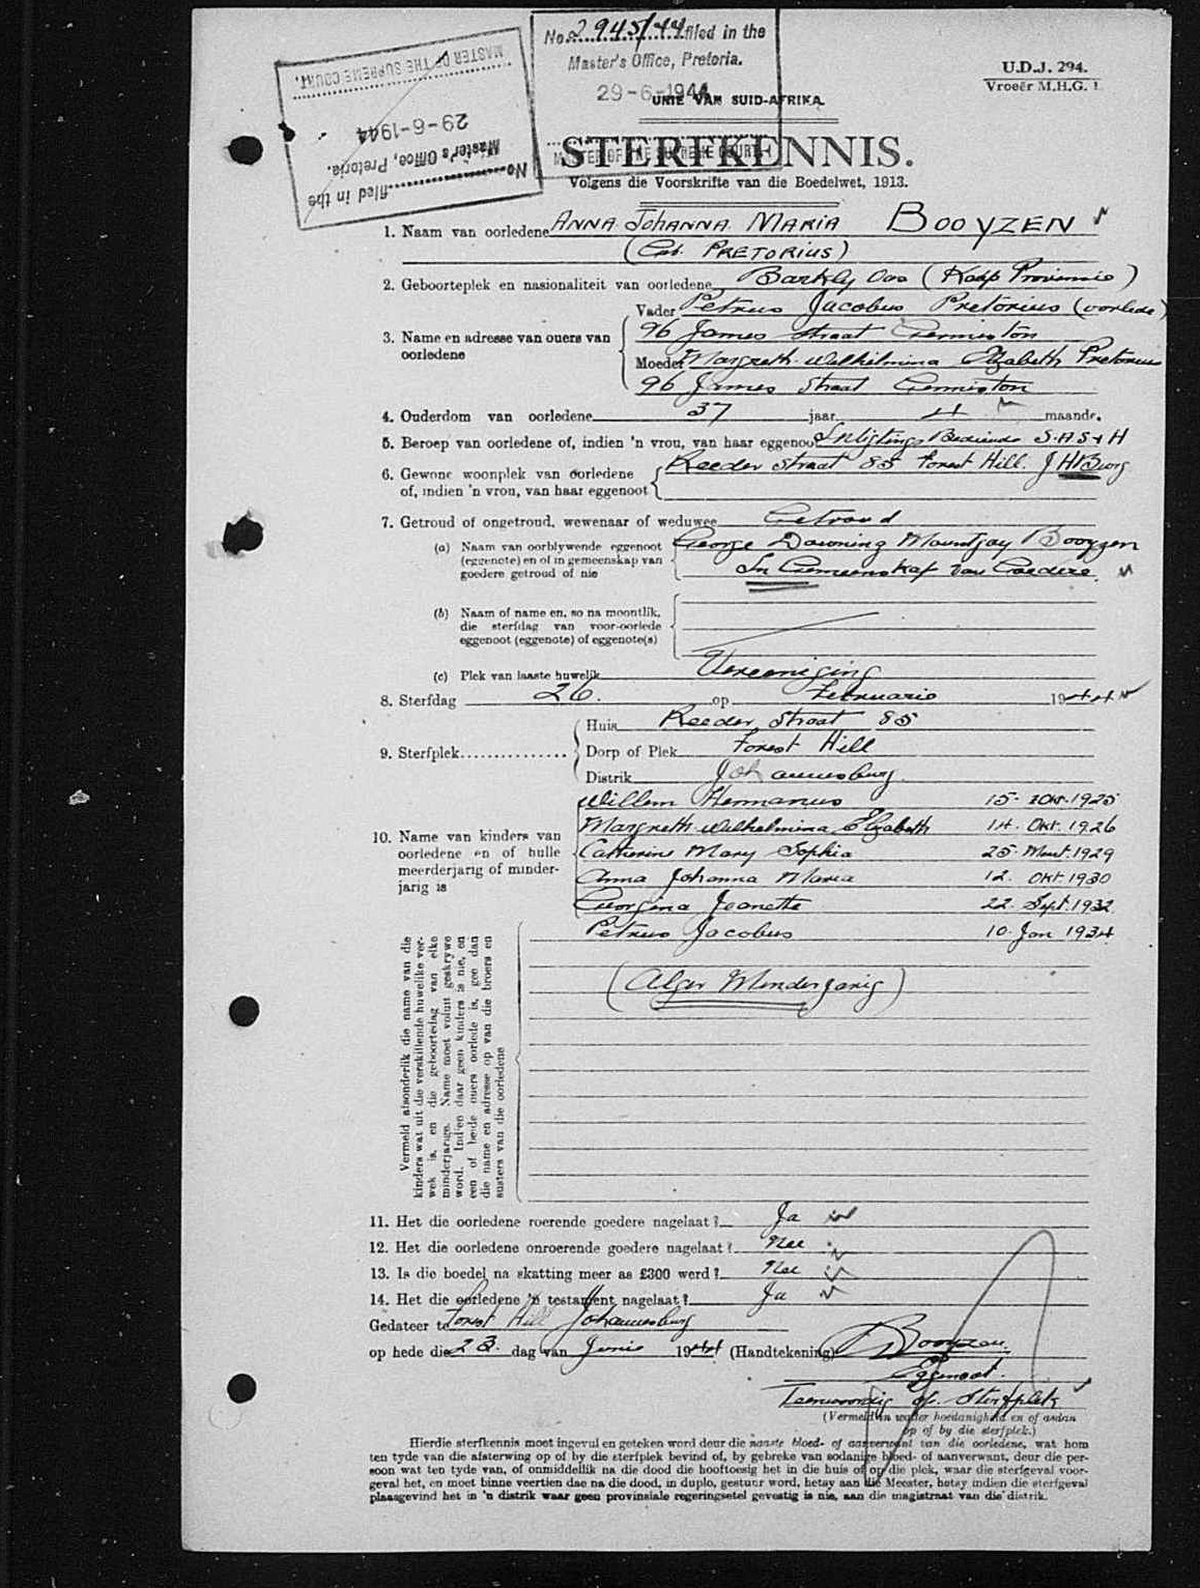 No. 2945/44 filed in the
Master's Office, Pretoria.
29-6-1944
MASTER OF THE SUPREME COURT
No. filed in the
Master's Office, Pretoria.
29-6-1944
MASTER OF THE SUPREME COURT.
U.D.J. 294.
Vroeër M.H.G. 1
UNIE VAN SUID-AFRIKA.
STERFKENNIS.
Volgens die Voorskrifte van die Boedelwet, 1913.
1. Naam van oorledene ANNA JOHANNA MARIA BOOYZEN
(Geb. PRETORIUS)
2. Geboorteplek en nasionaliteit van oorledene Barkly Oos (Kaap Provinsie)
3. Name en adresse van ouers van oorledene
Vader Petrus Jacobus Pretorius (oorlede)
96 James Straat Germiston
Moeder Margreth Welhelmina Elizabeth Pretorius
96 James Straat Germiston
4. Ouderdom van oorledene 37 jaar 4 maande.
5. Beroep van oorledene of, indien 'n vrou, van haar eggenoot Inligtings Bediende S.A.S & H
6. Gewone woonplek van oorledene of, indien 'n vrou, van haar eggenoot
Reeder Straat 85 Forest Hill. JHBurg
7. Getroud of ongetroud, wewenaar of weduwee Getroud
(a) Naam van oorblywende eggenoot (eggenote) en of in gemeenskap van goedere getroud of nie
George Downing Mountjoy Booyzen
In Gemeenskap van Goedere.
(b) Naam of name en, so na moontlik, die sterfdag van voor-oorlede eggenoot (eggenote) of eggenote(s)
(c) Plek van laaste huwelik Vereeniging
8. Sterfdag 26. op Februarie 1944
9. Sterfplek
Huis Reeder Straat 85
Dorp of Plek Forest Hill
Distrik Johannesburg.
10. Name van kinders van oorledene en of hulle meerderjarig of minderjarig is
Willem Hermanus 15. Okt. 1925
Margreth Welhelmina Elizabeth 14. Okt. 1926
Catherine Mary Sophia 25. Maart. 1929
Anna Johanna Maria 12. Okt 1930
Georgina Jeanette 22. Sept. 1932
Petrus Jacobus 10. Jan 1934
(Alger Minderjarig)
Vermeld afsonderlik die name van die
kinders wat uit die verskillende huwelike ver-
wek is, en die geboortedag van elke
minderjarige. Name moet voluit geskrywe
word. Indien daar geen kinders is nie, en
een of beide ouers oorlede is, gee dan
die name en adresse op van die broers en
susters van die oorledene
11. Het die oorledene roerende goedere nagelaat? Ja
12. Het die oorledene onroerende goedere nagelaat? Nee
13. Is die boedel na skatting meer as £300 werd? Nee
14. Het die oorledene 'n testament nagelaat? Ja
Gedateer te Forest Hill Johannesburg
op hede die 23. dag van Junie 1944 (Handtekening) Booyzen.
Eggenoot.
Teenwoordig op Sterfplek
(Vermeld in watter hoedanigheid en of aldan
op of by die sterfplek.)
Hierdie sterfkennis moet ingevul en geteken word deur die naaste bloed- of aanverwant van die oorledene, wat hom
ten tyde van die afsterwing op of by die sterfplek bevind of, by gebreke van sodanige bloed- of aanverwant, deur die per-
soon wat ten tyde van, of onmiddellik na die dood die hooftoesig het in die huis of op die plek, waar die sterfgeval voor-
geval het, en moet binne veertien dae na die dood, in duplo, gestuur word, hetsy aan die Meester, hetsy indien die sterfgeval
plaasgevind het in 'n distrik waar geen provinsiale regeringsetel gevestig is nie, aan die magistraat van die distrik.